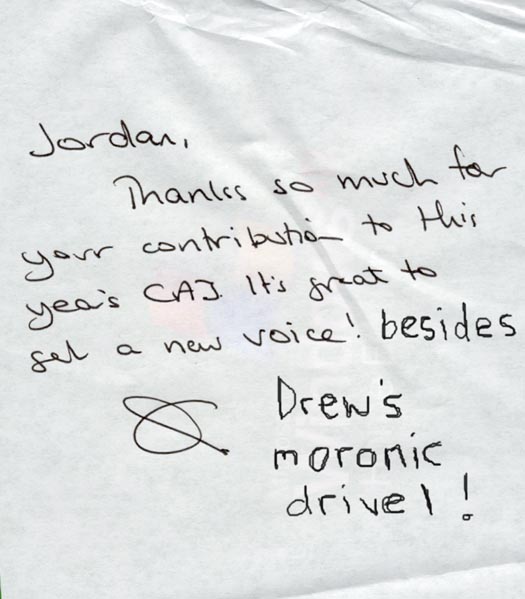 Jordan,
Thanks so much for
your contribution to this
year's CAJ. It's great to
get a new voice! besides
Drew's
moronic
drivel!